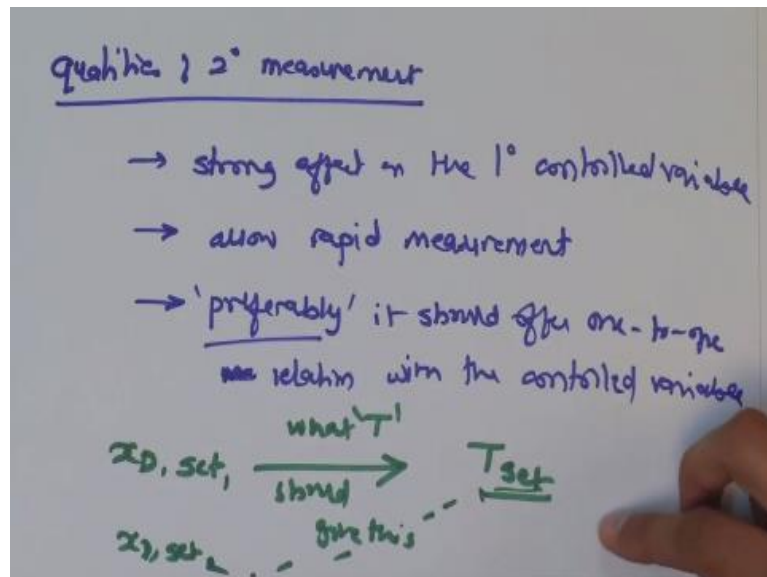 qualities of 2° measurement
→ strong effect on the 1° controlled variable
→ allow rapid measurement
→ 'preferably' it should offer one-to-one
relation with the controlled variable
what 'T'
x_D, set, → T_set
should
give this
x_D, set,